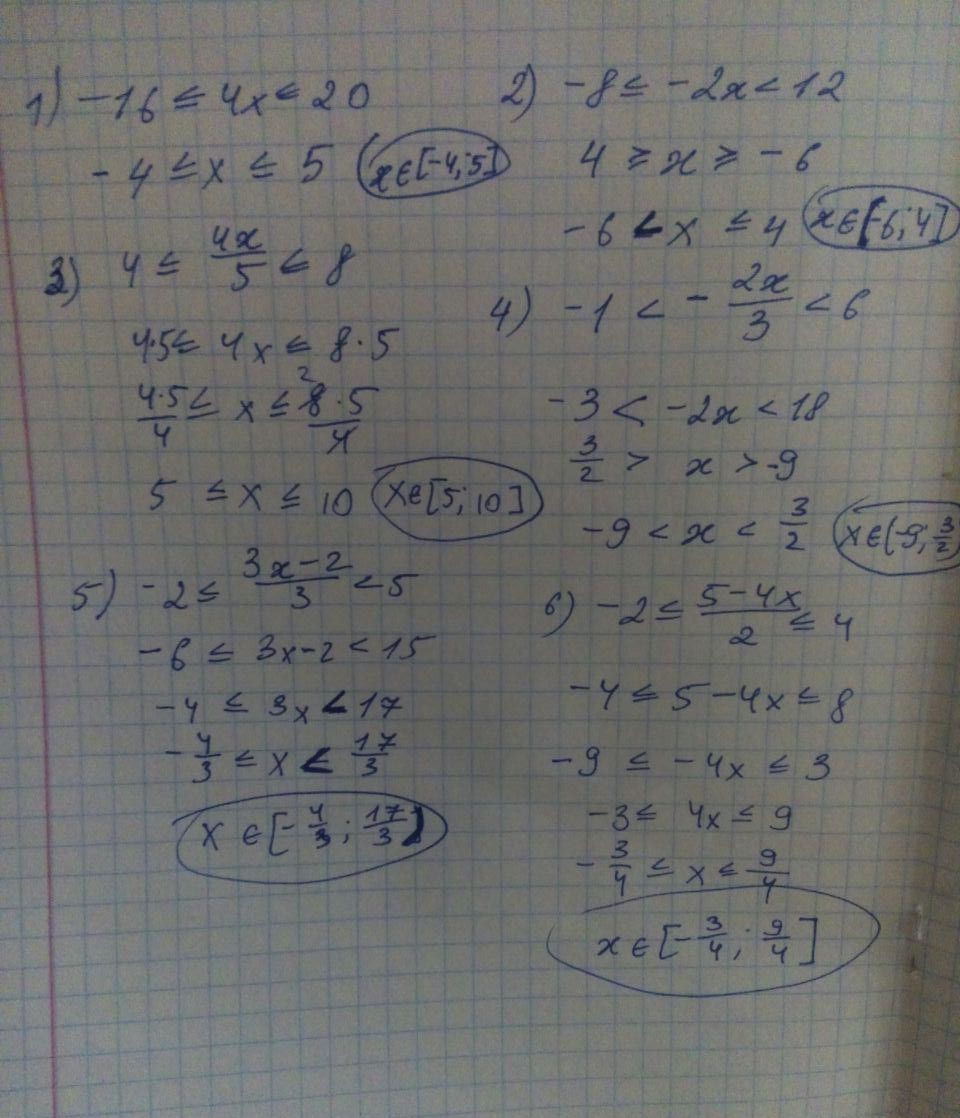 1) -16 ≤ 4x ≤ 20
-4 ≤ x ≤ 5 x∈[-4;5]
2) -8 ≤ -2x < 12
4 ≥ x ≥ -6
-6 < x ≤ 4 x∈[-6;4]
3) 4 ≤ 4x/5 ≤ 8
4·5 ≤ 4x ≤ 8·5
4·5/4 ≤ x ≤ 8·5/4 2
5 ≤ x ≤ 10 x∈[5;10]
4) -1 < -2x/3 < 6
-3 < -2x < 18
3/2 > x > -9
-9 < x < 3/2 x∈(-9;3/2
5) -2 ≤ 3x-2/3 < 5
-6 ≤ 3x-2 < 15
-4 ≤ 3x < 17
-4/3 ≤ x < 17/3
x∈[-4/3;17/3)
6) -2 ≤ 5-4x/2 ≤ 4
-4 ≤ 5-4x ≤ 8
-9 ≤ -4x ≤ 3
-3 ≤ 4x ≤ 9
-3/4 ≤ x ≤ 9/4
x∈[-3/4;9/4]